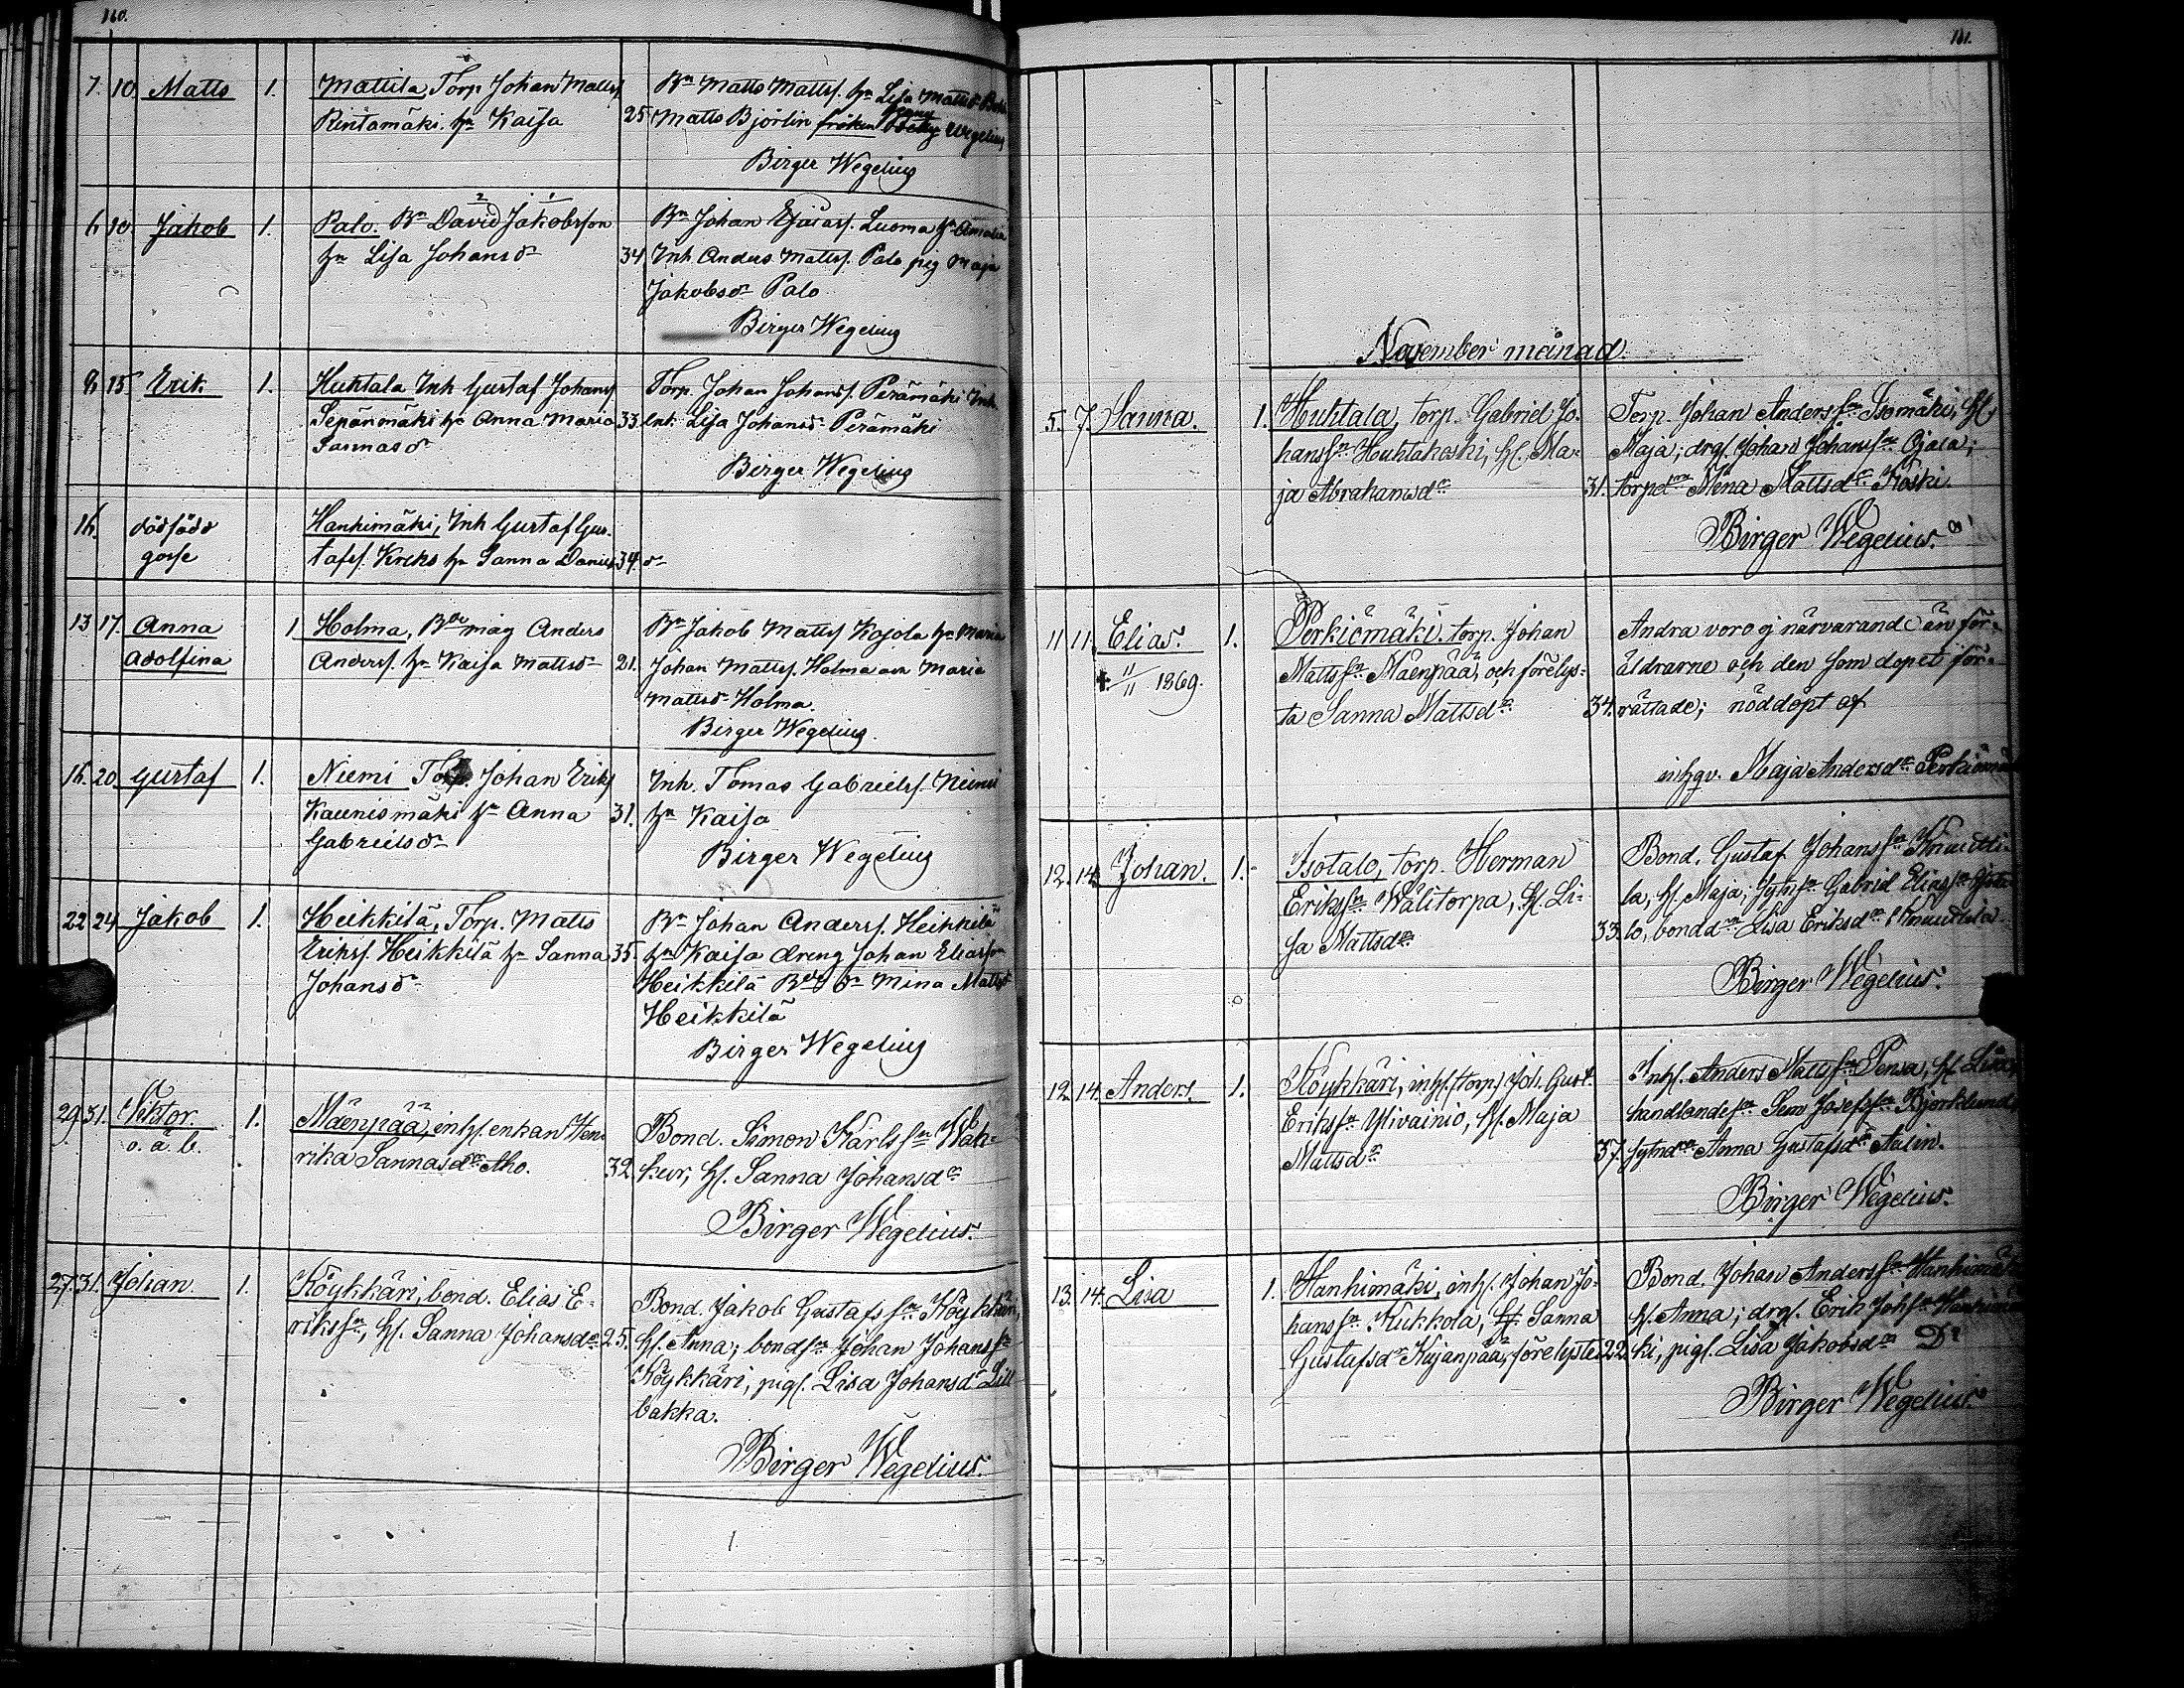 160.
7. 10. Matts 1. Mattila, Torp Johan Mattsf
Rintamäki. h:n Kaisa 25
Bn Matts Mattsf. hn Lisa
Matts Björlin fröken Wegelius
Birger Wegelius
6 10. Jakob 1. Palo. Bn David Jakobsson
hn Lisa Johansdr 34
Bn Johan Esaiasf. Luoma hn Amalia
Inh. Anders Mattsf. Palo pig Maja
Jakobsdr Palo
Birger Wegelius
8 15 Erik 1. Huhtala Inh Gustaf Johansf
Sepänmäki hn Anna Maria 33.
Sannasdr
Torp. Johan Johansf. Perämäki Inh.
enk. Lisa Johansdr Perämäki
Birger Wegelius
16. dödfödd
gosse
Hanhimäki, Inh Gustaf Gus-
tafsf. Kreks hn Sanna Daniels 34. dr
13 17. Anna
Adolfina
1 Holma, Bde måg Anders
Andersf. hn Kaisa Mattsdr 21.
Bn Jakob Mattsf Kojola hn Maria
Johan Mattsf. Holma och Maria
Mattsdr Holma.
Birger Wegelius.
16. 20. Gustaf 1. Niemi Torp. Johan Eriksf
Kaunismäki hn Anna 31.
Gabrielsdr
Inh. Tomas Gabrielsf. Niemi
hn Kaisa
Birger Wegelius
22 24 Jakob 1. Heikkilä, Torp. Matts
Eriksf. Heikkilä hn Sanna 35.
Johansdr
Bn Johan Andersf. Heikkilä
hn Kaisa dreng Johan Eliasson
Heikkilä Bde dr Mina Mattsdr
Heikkilä
Birger Wegelius
29. 31. Viktor.
o. ä. b.
1. Mäenpää, inhs. enkan Hen-
rika Sannasdr Aho. 32
Bond. Simon Karlssn Wäh-
, h. Sanna Johansdr
Birger Wegelius.
27. 31. Johan. 1. Köykkäri, bond. Elias E-
rikssn, h. Sanna Johansdr 25.
Bond. Jakob Gustafssn Köykkäri,
h. Anna; bondsn Johan Johanssn
Köykkäri, pigs. Lisa Johansdr Lill
bakka.
Birger Wegelius.
161.
November månad.
5. 7. Sanna. 1. Huhtala, torp. Gabriel Jo-
hanssn Huhtakoski, h. Ma-
ja Abrahamsdr 31.
Torp. Johan Anderssn Isomäki, h.
Maja; drg. Johan Johanssn Ojala;
torpdrn Mina Mattsdr Koski.
Birger Wegelius.
11 11. Elias.
+ 11/11 1869.
1. Perkiömäki. torp. Johan
Mattssn Mäenpää, och förelys-
ta Sanna Mattsdr 34.
Andra voro ej närvarande än för-
äldrarne och den som dopet för-
rättade; nöddöpt af
inhqv. Maja Andersdr Perkiömäki
12. 14. Johan. 1. Isotalo, torp. Herman
Erikssn Wälitorpa, h. Li-
sa Mattsdr 33.
Bond. Gustaf Johanssn Knuutti-
la, h. Maja, sytnsn Gabriel Eliassn Isota-
lo, bonddrn Lisa Eriksdr Knuuttila
Birger Wegelius.
12. 14. Anders. 1. Köykkäri, inhs. (torp) Joh. Gust.
Erikssn Ylivainio, h. Maja
Mattsdr 37.
Inhs. Anders Mattssn Pensa, h. Lisa,
handlandesn Sem Josefssn Björklund,
sytndrn Anna Gustafsdr Aalin.
Birger Wegelius.
13. 14. Lisa 1. Hanhimäki, inhs. Johan Jo-
hanssn Kukkola, h. Sanna
Gustafsdr Kujanpää, förelyste 22.
Bond. Johan Anderssn Hanhimäki
h. Anna; drg. Erik Johssn Hanhimä
ki, pigs. Lisa Jakobsdr Do
Birger Wegelius.